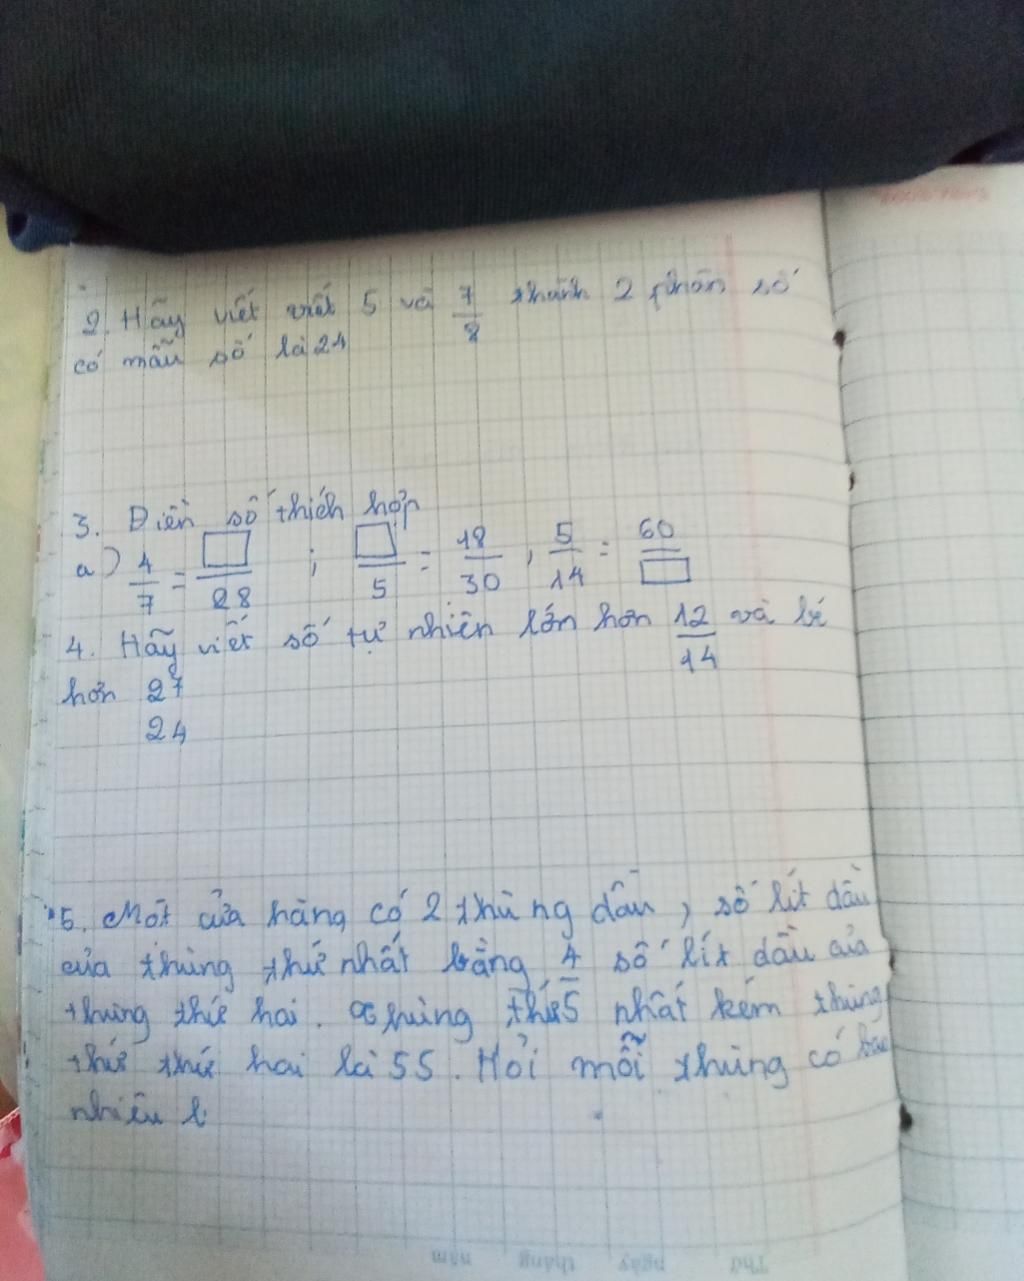 2. Hãy viết viết 5 và 7/8 thành 2 phân số
có mẫu số là 24
3. Điền số thích hợp
a) 4/7 = □/28 ; □/5 = 18/30 , 5/14 = 60/□
4. Hãy viết số tự nhiên lớn hơn 12/14 và bé
hơn 27
24
5. Một cửa hàng có 2 thùng dầu, số lít dầu
của thùng thứ nhất bằng 4/5 số lít dầu của
thùng thứ hai. Thùng thứ nhất kém thùng
thứ thứ hai là 55. Hỏi mỗi thùng có bao
nhiêu l
Thứ ngày tháng năm